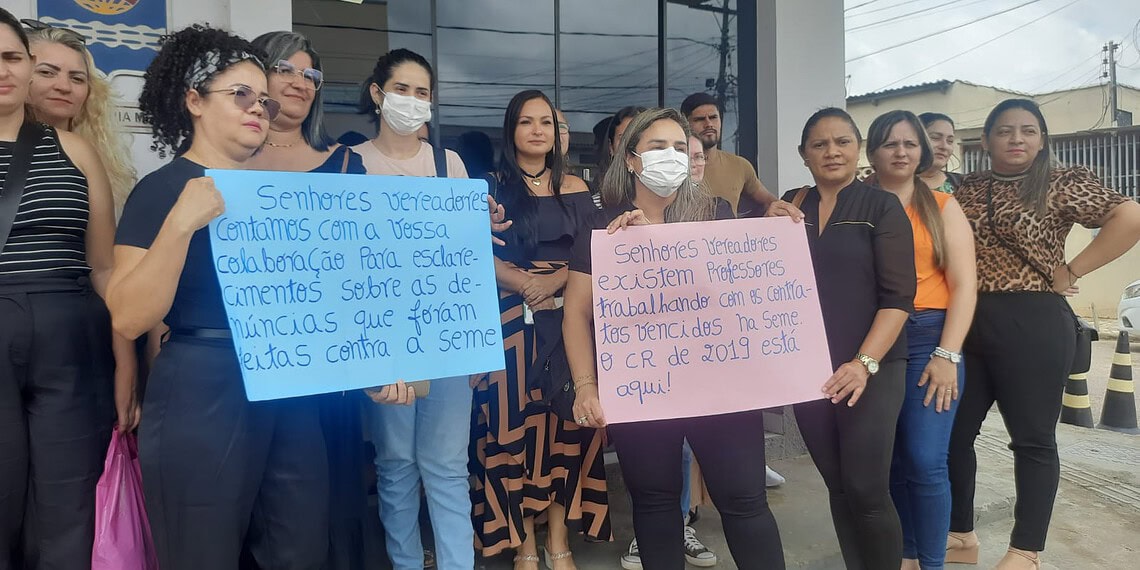 Senhores vereadores
contamos com a vossa
colaboração para esclare-
cimentos sobre as de-
núncias que foram
feitas contra a seme
Senhores vereadores
existem Professores
trabalhando com os contra-
tos vencidos na seme.
O CR de 2019 está
aqui!